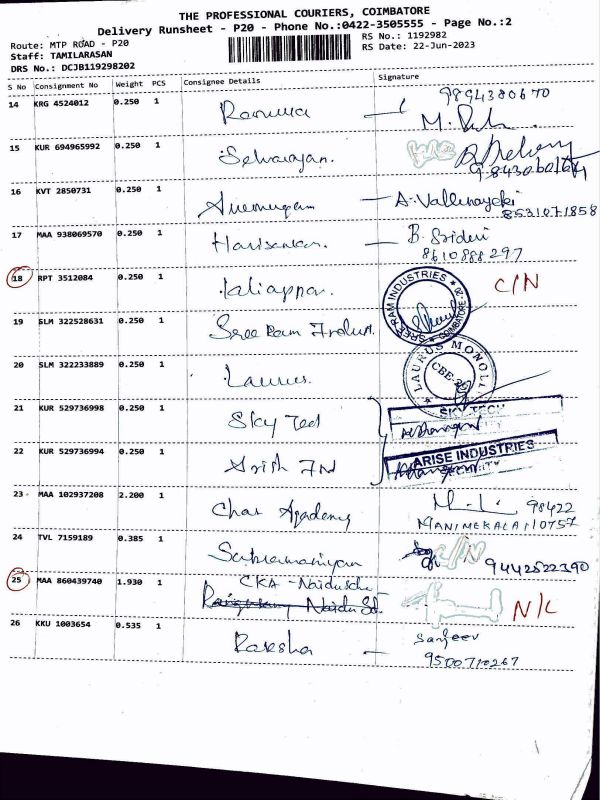 THE PROFESSIONAL COURIERS, COIMBATORE
Delivery Runsheet - P20 - Phone No.:0422-3505555 - Page No.:2
Route: MTP ROAD - P20
Staff: TAMILARASAN
DRS No.: DCJB119298202
RS No.: 1192982
RS Date: 22-Jun-2023
S No Consignment No Weight PCS Consignee Details Signature
14 KRG 4524012 0.250 1 9894380670
15 KUR 694965992 0.250 1 Selvarajan.
16 KVT 2850731 0.250 1 A. Vallinayaki
8531071858
17 MAA 938069570 0.250 1 Harisankar. B. Sridevi
8610888297
18 RPT 3512084 0.250 1 Kaliappan. C/N
SREE RAM INDUSTRIES * COIMBATORE
19 SLM 322528631 0.250 1 Sree Ram
20 SLM 322233889 0.250 1 Laurus.
LAURUS MONOLI
CBE
21 KUR 529736998 0.250 1 Sky Tech
SKY TECH
22 KUR 529736994 0.250 1 Ind
ARISE INDUSTRIES
23 MAA 102937208 2.200 1 Academy 98422
MANIMEKALAI 10757
24 TVL 7159189 0.385 1 Subramaniyan C/N 9442522390
25 MAA 860439740 1.930 1 CKA - Naidu
Naidu St. N/L
26 KKU 1003654 0.535 1 Raksha Sanjeev
9500710267